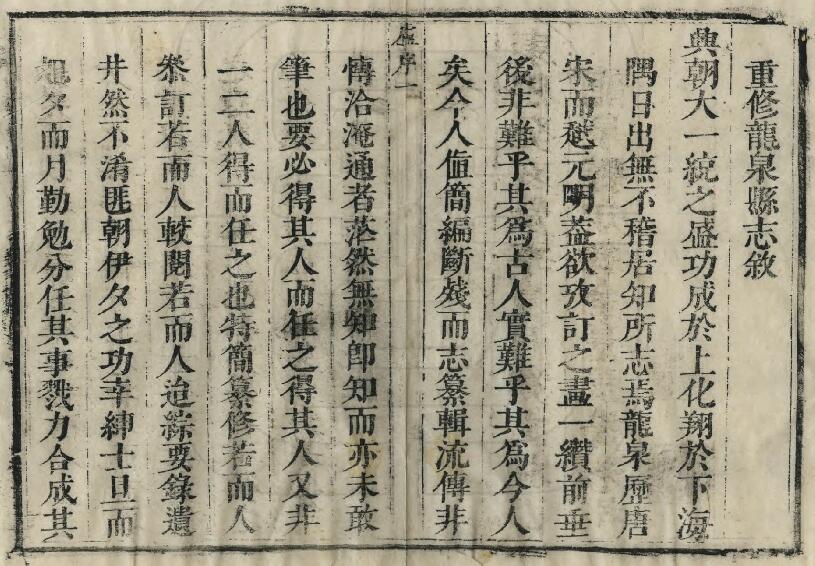 重修龍泉縣志敘
興朝大一統之盛功成於上化翔於下海
隅日出無不稽居知所志焉龍泉歷唐
宋而越元明葢欲攷訂之畫一纘前垂
後非難乎其爲古人實難乎其爲今人
矣今人值簡編斷殘而志纂輯流傳非
序一
慱洽淹通者茫然無知卽知而亦未敢
筆也要必得其人而任之得其人又非
一二人得而任之也特簡纂修若而人
叅訂若而人較閱若而人迨綜要錄遺
井然不淆匪朝伊夕之功幸紳士旦而
夕而月勤勉分任其事戮力合成其